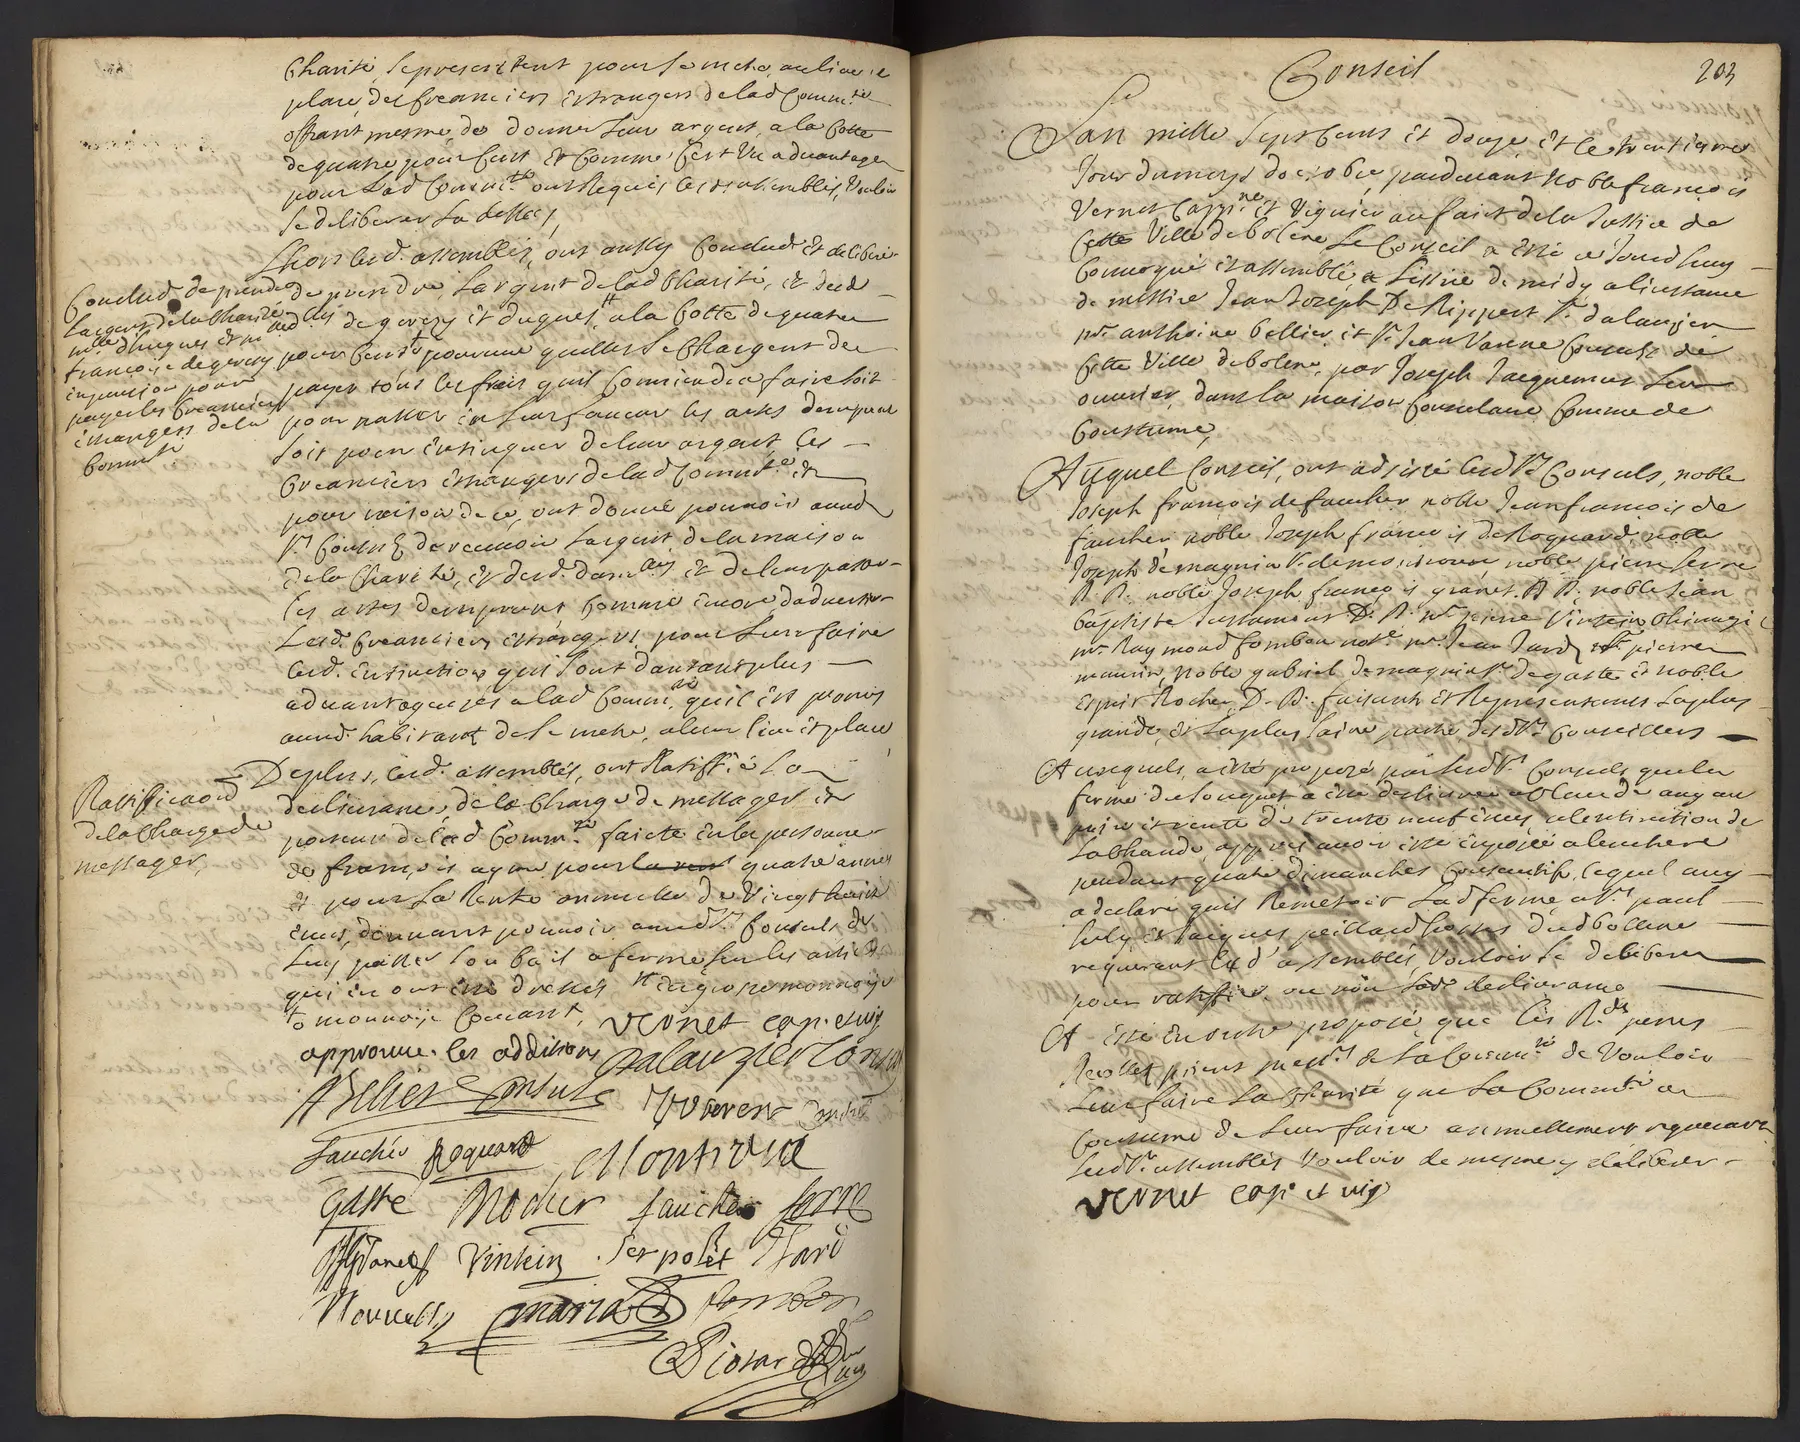 Charité, se presentent pour se mettre, au lieu et
place des creanciers estrangers de lad. Comm.té
offrant mesme de donner leur argent, a la Cotte
de quatre pour Cent et Comme C'est un advantage
pour Lad Comm.té ont Requis les assemblés, vouloir
se deliberer La dessus,
Lhors lesd. assemblés, ont aussy Conclud et deliberé
de prendre, L'argent de lad Charité, et desd
de gevery et dugues, a la Cotte de quatre
pour Cent pourveu qu'elles se Chargent de
payer tous les frais quil Conviendra faire soit
pour passer en leur faveur les actes
soit pour extinguer de leur argent, les
Creanciers estrangers de lad Comm.té et
pour raison de ce, ont donné pouvoir ausd
s.rs Consuls de recevoir L'argent de la maison
de la Charité, et desd. dam.lles et de leur passer
les actes comme encore d'advertir
Lesd. Creanciers estrangers pour leur faire
lesd. extinctions qui sont d'autant plus
advantageuses a lad Comm.té quil est permis
ausd. habitants de se mettre, a leur lieu et place
Conclud de prendre
L'argent de la Charité
m.lle dugues et m.lle
françoise de gevery
en pension pour
payer les Creanciers
estrangers de la
Comm.té
De plus, lesd. assemblés, ont Ratiffié La
deslivrance, de la Charge de messager et
porteur de lad Comm.té faicte en la personne
de françois ayme pour quatre années
et pour La Rente annuelle de vingt huit
escus, donnant pouvoir ausd s.rs Consuls de
Luy passer son bail a ferme sur les articles
qui en ont esté dressés en grosse monnoye
monnoye Courant,
Ratiffica.on
de la Charge de
messager,
Vernet cap. et vig
approuve les additions Dalauzier Consul
ABellier Consul VVarene Consul
Faucher Roquard Montirous
Gaste Rocher faucher serre
Granet Vinsein Serpolet Iard
Maria fombon
Conseil 203
L'an mille sept Cents et douze et le trentieme
Jour du moys d'octobre, pardevant Noble françois
Vernet Capp.ne et Viguier au fait de la Justice de
Cette Ville de bolene Le Conseil a esté ce jourd'huy
Convoqué et assemblé, a L'issue de midy a l'instance
de messire Jean Joseph De Rippert s.r dalauzier
m.e anthoine bellier et s.r Jean Varene Consuls de
Cette Ville de bolene, par Joseph Jacquemin leur
ouvrier, dans la maison Consulaire Comme de
Coustume,
Auquel Conseil, ont adsisté lesd s.rs Consuls, noble
Joseph françois de faucher noble Jean françois de
faucher, noble Joseph françois de Roquard noble
Joseph de magnin s.r de montirous, noble pierre serre
D. R. noble Joseph françois granet D. R. noble Jean
baptiste D. R. m.e pierre Vinsein Chirurgi
m.e Raymond fombon not.e m.e Jean Iard pierre
maurin, noble gabriel de magnin s.r de gaste et noble
Esprit Rocher D. R. faisants et Representants La plus
grande, et La plus saine partie des s.rs Conseillers
Ausquels, a esté proposé par lesd s.rs Consuls, que la
ferme du souquet a esté deslivrée a Claude augan
prix et rente de trente neuf escus, a l'extinction de
La Chande, appres avoir esté exposée a l'enchere
pendant quatre dimanches Consecutifs, lequel aug
a declaré quil Remettoit Lad ferme a s.rs paul
July et Jacques peillard hostes dud bollene
requerant lesd assemblés, vouloir se deliberer
pour ratiffier ou non lad. deslivrance
A esté en outre proposé que les R.ds peres
Recollets prient mess.rs de La Comm.té de Vouloir
Leur faire La Charité que La Comm.té a
Coustume de leur faire annuellement requerant
lesd s.rs assemblés Vouloir de mesme y deliberer
Vernet cap. et vig